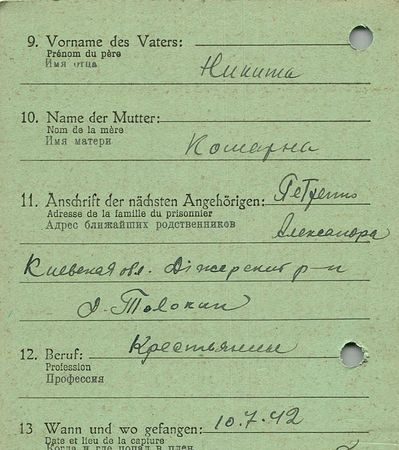 9. Vorname des Vaters:
Prénom du père
Имя отца
Никита
10. Name der Mutter:
Nom de la mère
Имя матери
Комарна
11. Anschrift der nächsten Angehörigen:
Adresse de la famille du prisonnier
Адрес ближайших родственников
Александра
Киевская обл. р-н
12. Beruf: Крестьянин
Profession
Профессия
13 Wann und wo gefangen: 10.7.42
Date et lieu de la capture
Когда и где попал в плен